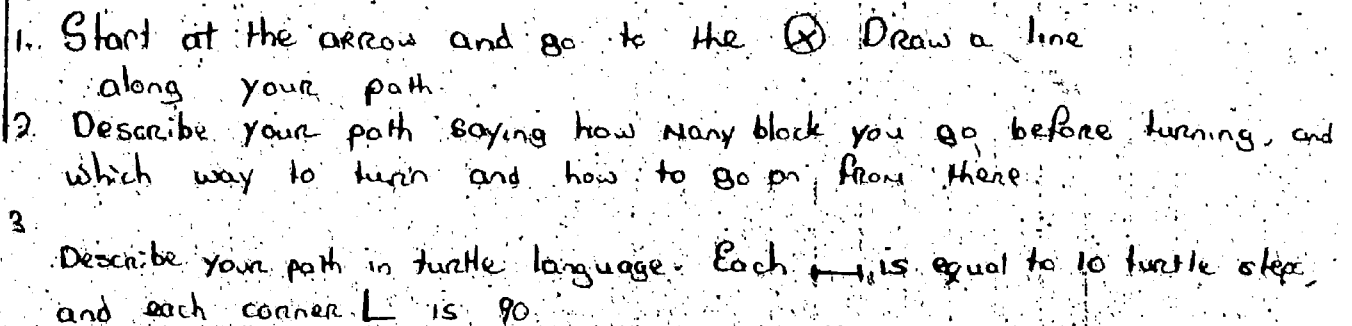 1. Start at the arrow and go to the ⓧ Draw a line
along your path.
2. Describe your path saying how many block you go before turning, and
which way to turn and how to go on from there.
3
Describe your path in turtle language. Each |—| is equal to 10 turtle steps,
and each corner L is 90.